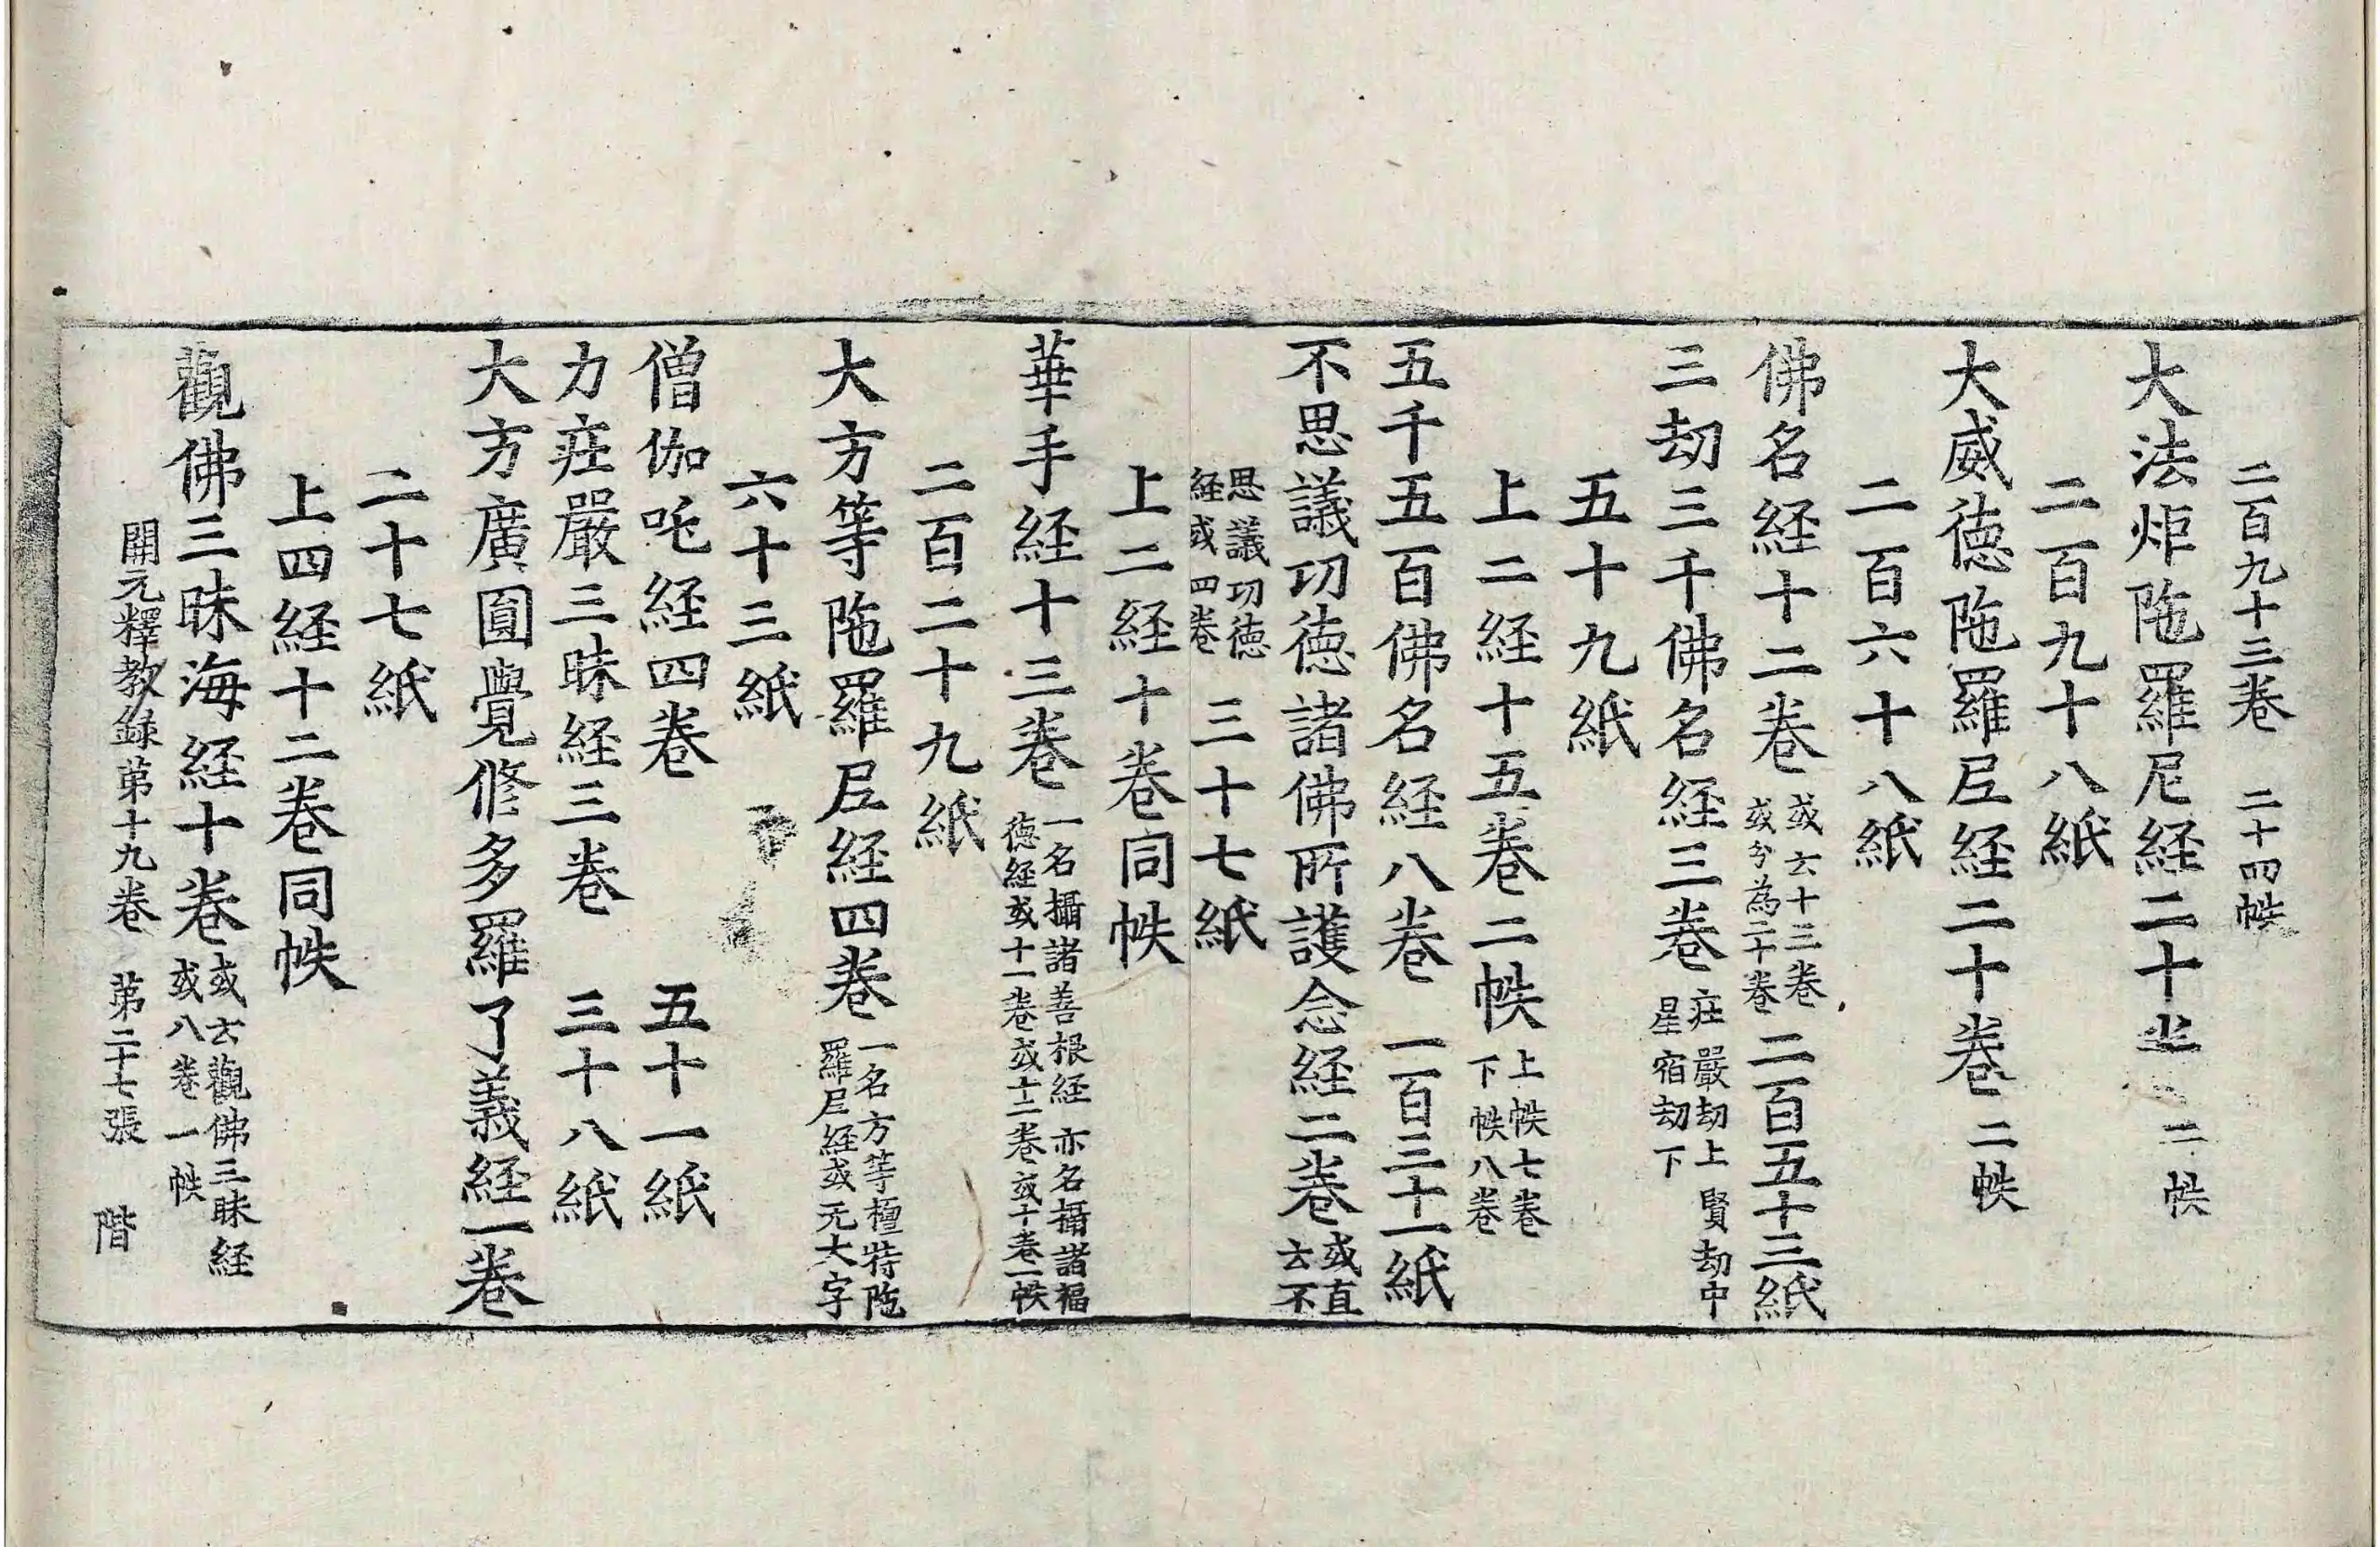 二百九十三卷　二十四帙
大法炬陁羅尼経二十卷　二帙
二百九十八紙
大威徳陁羅尼経二十卷　二帙
二百六十八紙
佛名経十二卷 或云十三卷 或分為二十卷 二百五十三紙
三劫三千佛名経三卷 㽵嚴劫上　賢劫中 星宿劫下
五十九紙
上二経十五卷二帙 上帙七卷 下帙八卷
五千五百佛名経八卷　一百三十一紙
不思議功徳諸佛所護念経二卷 或直 云不
思議功徳 経或四卷 三十七紙
上二経十卷同帙
華手経十三卷 一名攝諸善根経亦名攝諸福 徳経或十一卷或十二卷或十卷一帙
二百二十九紙
大方等陁羅尼経四卷 一名方等檀特陁 羅尼経或无大字
六十三紙
僧伽吒経四卷　五十一紙
力㽵嚴三昧経三卷　三十八紙
大方廣圓覺修多羅了義経一卷
二十七紙
上四経十二卷同帙
觀佛三昧海経十卷 或云觀佛三昧経 或八卷一帙
開元釋教録苐十九卷　苐二十七張　階